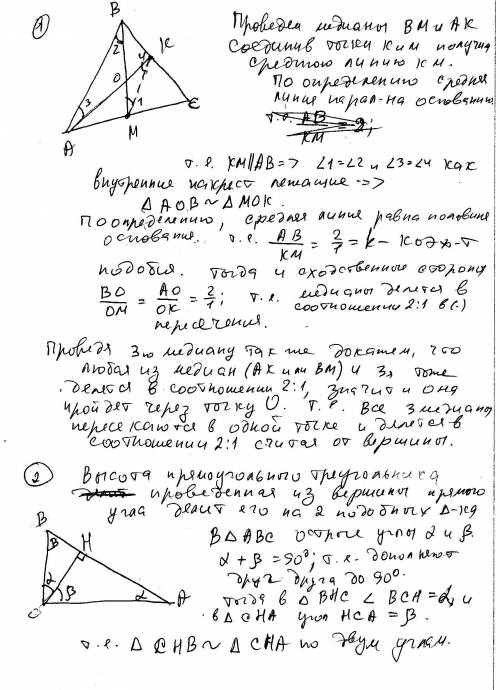 1
B
K
2
4
O
3
1
A
M
C
Проведем медианы BM и AK
соединив точки K и M получим
среднюю линию KM.
По определению средняя
линия парал-на основанию
т.е. AB/KM = 2;
т.е. KM∥AB => ∠1=∠2 и ∠3=∠4 как
внутренние накрест лежащие =>
△AOB ~ △MOK.
По определению, средняя линия равна половине
основания т.е. AB/KM = 2/1 = k - коэф-т
подобия. Тогда и сходственные стороны
BO/OM = AO/OK = 2/1; т.е. медианы делятся в
соотношении 2:1 в (·)
пересечения.
Проведя 3ю медиану так же докажем, что
любая из медиан (AK или BM) и 3я тоже
делятся в соотношении 2:1, значит и она
пройдет через точку O. т.е. Все 3 медианы
пересекаются в одной точке и делятся в
соотношении 2:1 считая от вершины.
2 Высота прямоугольного треугольника
делит проведенная из вершины прямого
угла делит его на 2 подобных △-ка
B
β
H
α
β
α
A
C
В △ABC острые углы α и β.
α + β = 90°; т.е. дополняют
друг друга до 90°.
Тогда в △BHC ∠BCH = α, и
в △CHA угол HCA = β.
т.е. △CHB ~ △CHA по двум углам.